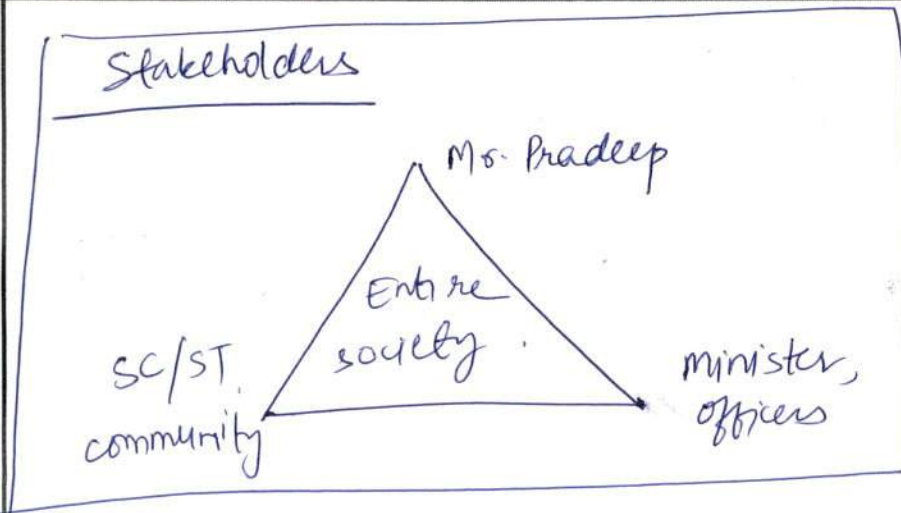 Stakeholders
Mr. Pradeep
Entire
society
SC/ST
community
minister,
officers